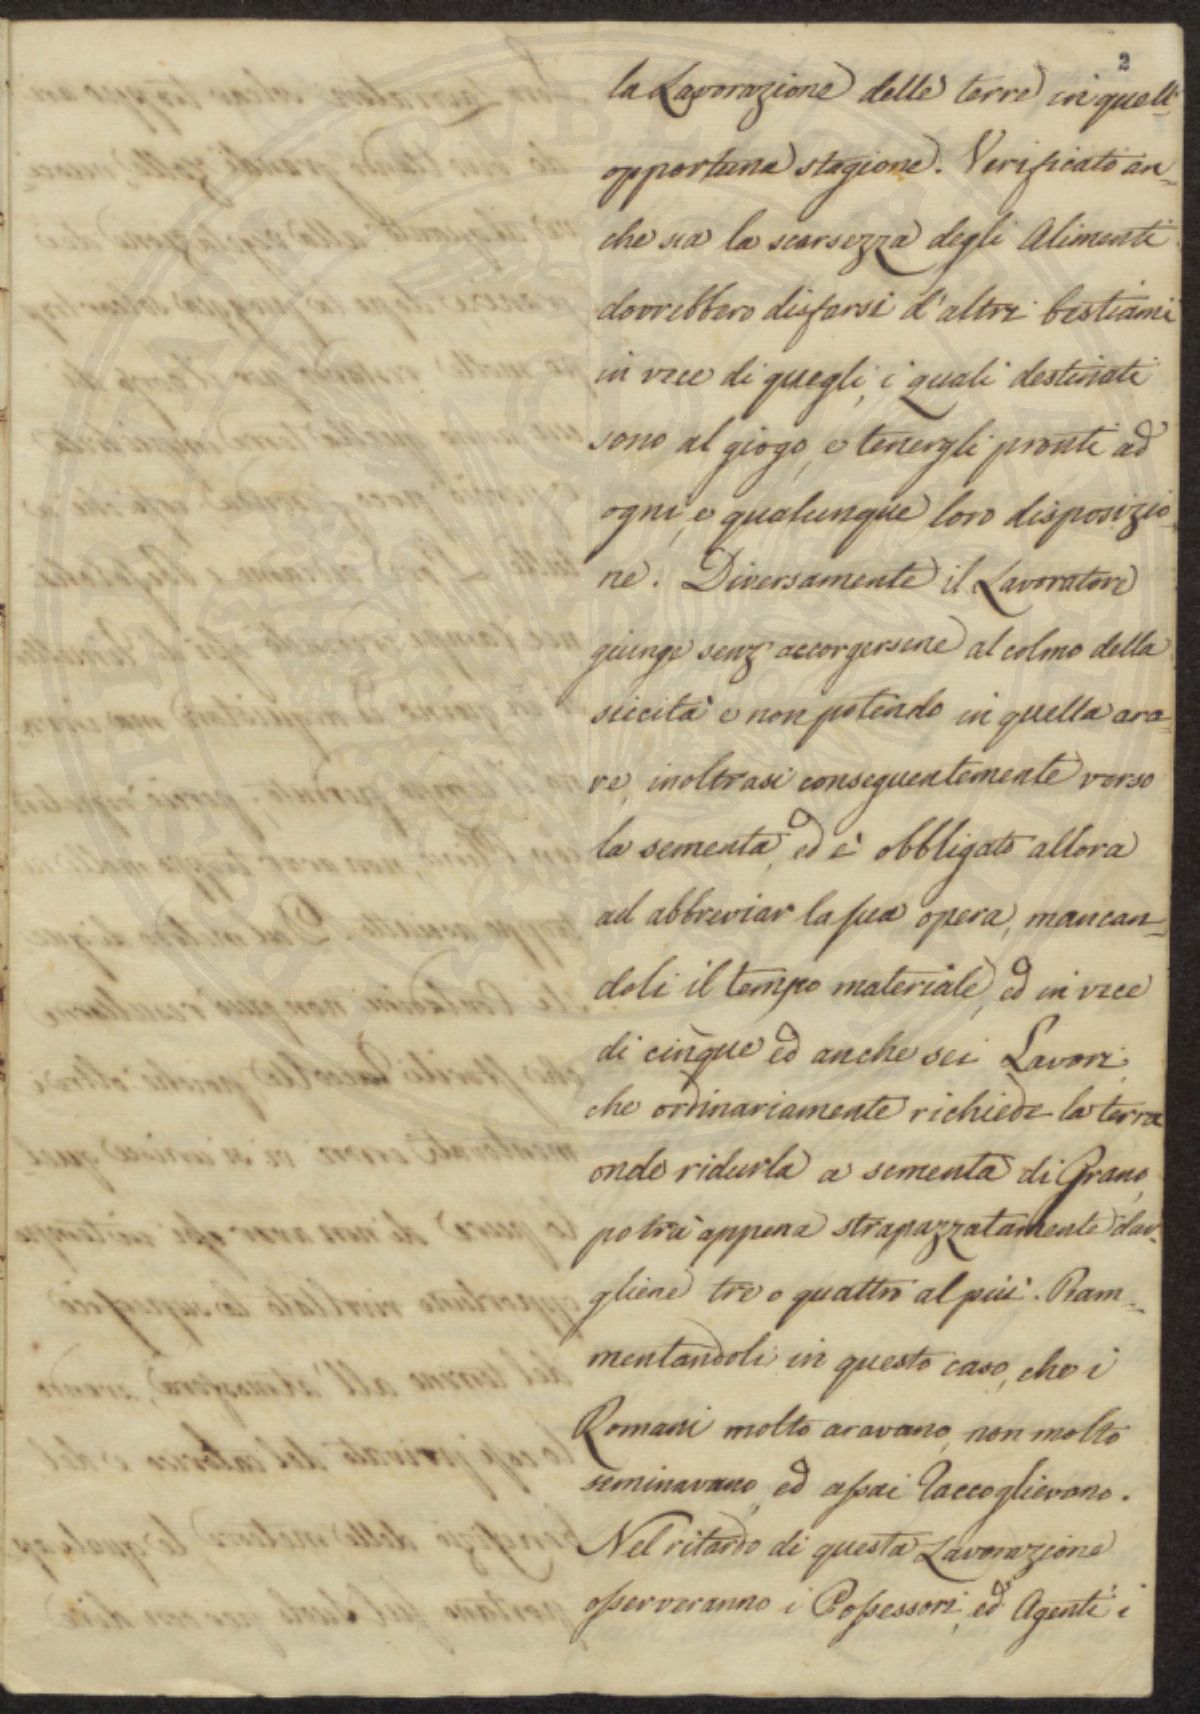 2
la Lavorazione delle terre in quell'
opportuna stagione. Verificato an-
che sia la scarsezza degli Alimenti
dovrebbero disfarsi d'altri bestiami
in vece di quegli, i quali destinati
sono al giogo, e tenergli pronti ad
ogni, e qualunque loro disposizio
ne. Diversamente il Lavoratore
giunge senz'accorgersene al colmo della
siccità e non potendo in quella ara-
re, inoltrasi conseguentemente verso
la sementa, ed è obbligato allora
ad abbreviar la sua opera, mancan-
doli il tempo materiale, ed in vece
di cinque ed anche sei Lavori,
che ordinariamente richiede la terra
onde ridurla a sementa di Grano,
potrà appena strapazzatamente dar-
gliene tre o quattro al più. Ram-
mentandoli in questo caso, che i
Romani molto aravano, non molto
seminavano, ed assai raccoglievano.
Nel ritardo di questa Lavorazione
osserveranno i Possessori, ed Agenti i